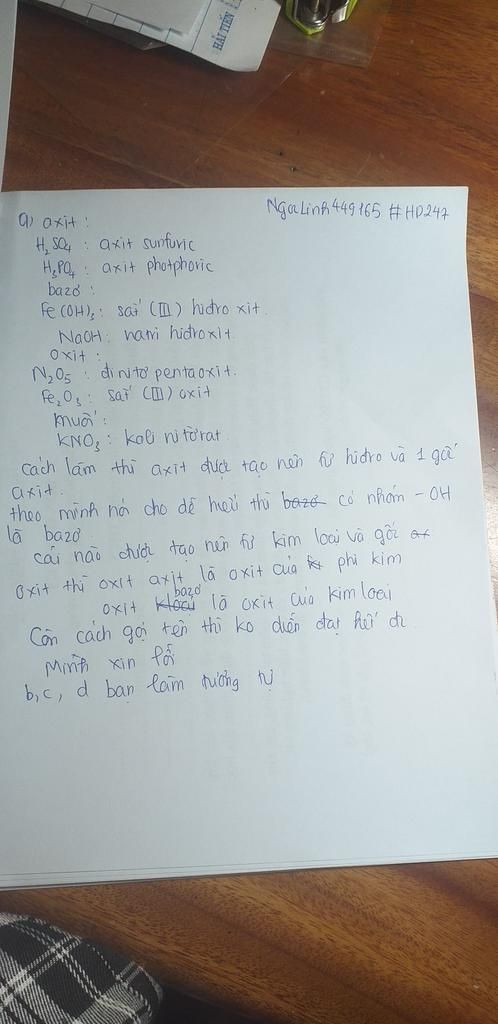 HẢI TIẾN
NgaLinh449165 #HD247
a) axit :
H₂SO₄ : axit sunfuric
H₃PO₄ : axit photphoric
bazơ :
Fe(OH)₃ : sắt (III) hiđroxit.
NaOH : natri hiđroxit
oxit :
N₂O₅ : đinitơ pentaoxit.
Fe₂O₃ : sắt (III) oxit
muối :
KNO₃ : kali nitơrat
cách làm thì axit được tạo nên từ hiđro và 1 gốc
axit.
theo mình nó cho dễ hiểu thì bazơ có nhóm -OH
là bazơ
cái nào được tạo nên từ kim loại và gốc ax
oxit thì oxit axit là oxit của phi kim
oxit kloai bazơ là oxit của kim loại
Còn cách gọi tên thì ko diễn đạt hết đc
Mình xin lỗi
b, c, d bạn làm tương tự